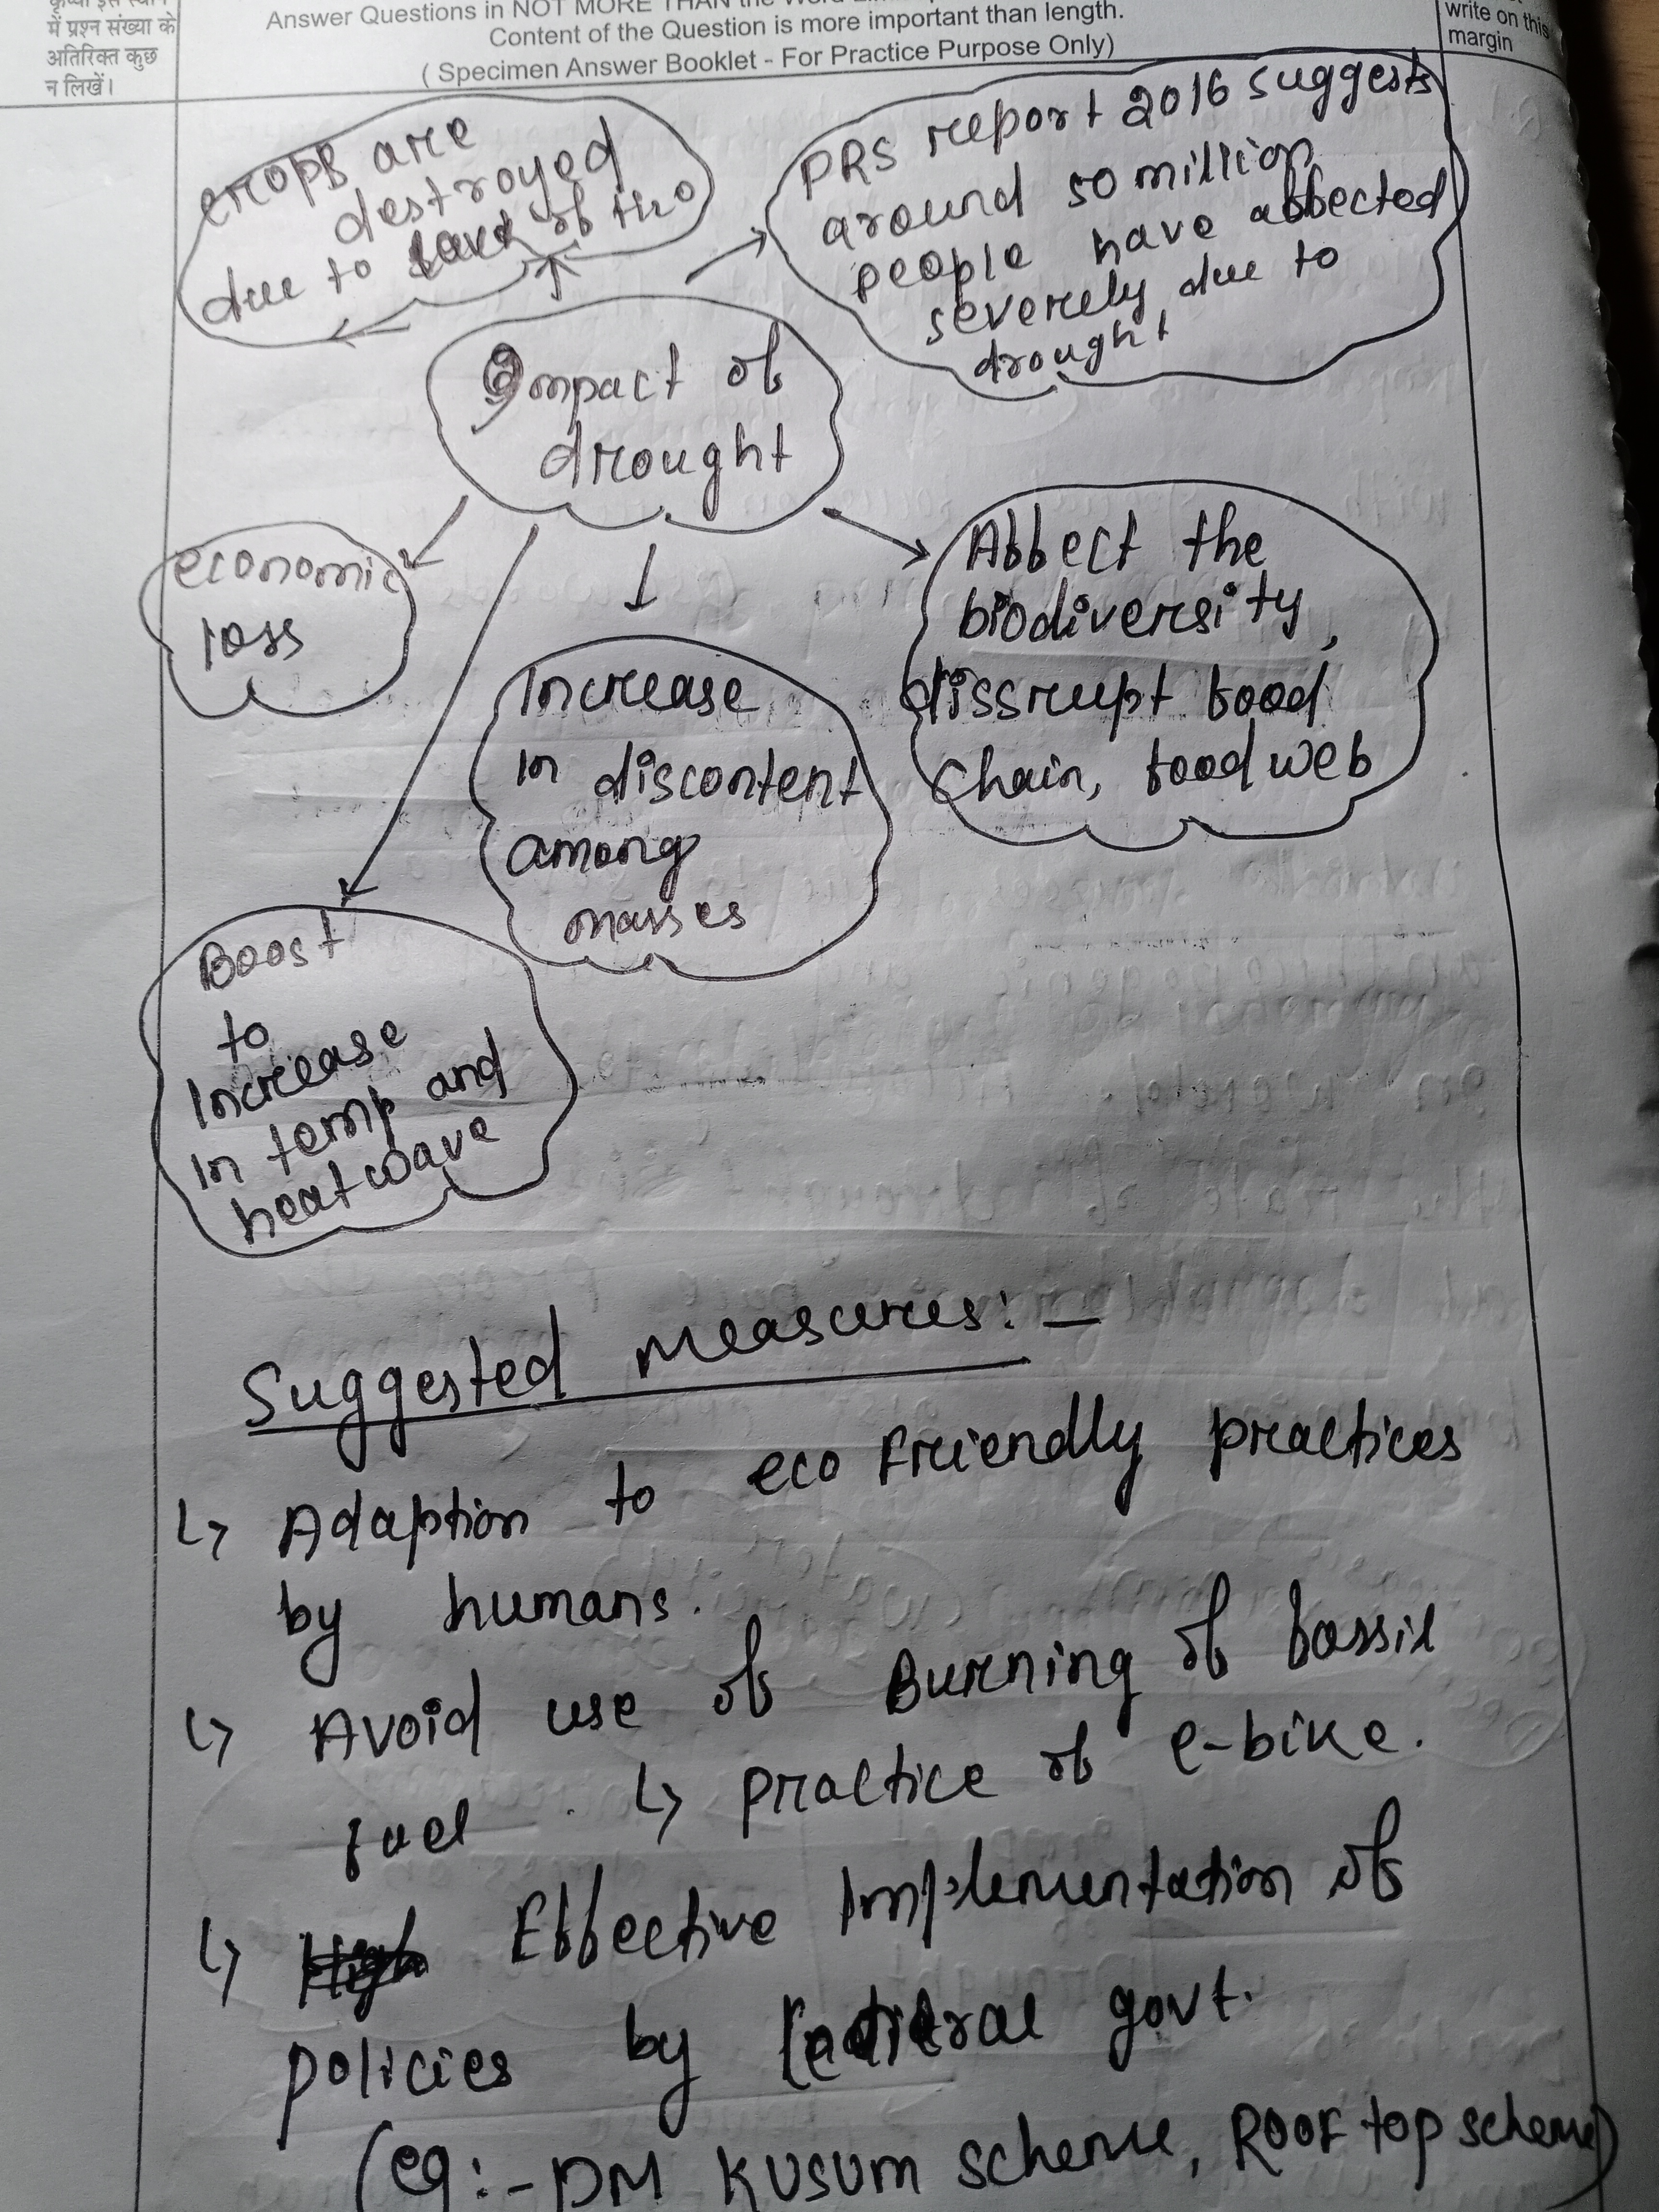 में प्रश्न संख्या के
अतिरिक्त कुछ
न लिखें।
Answer Questions in NOT MORE THAN the Word
Content of the Question is more important than length.
( Specimen Answer Booklet - For Practice Purpose Only)
write on this
margin
crops are
destroyed
due to of
PRS report 2016 suggests
around 50 million
people have affected
severely due to
drought
Impact of
drought
economic
loss
Affect the
biodiversity,
dissrupt food
chain, food web
Increase
in discontent
among
masses
Boost
to
Increase
in temp and
heat wave
Suggested measures: —
↳ Adaption to eco friendly practices
by humans.
↳ Avoid use of Burning of fossil
fuel . ↳ practice of e-bike.
↳ Effective Implementation of
policies by govt.
(eg:- PM KUSUM scheme, ROOF top scheme)